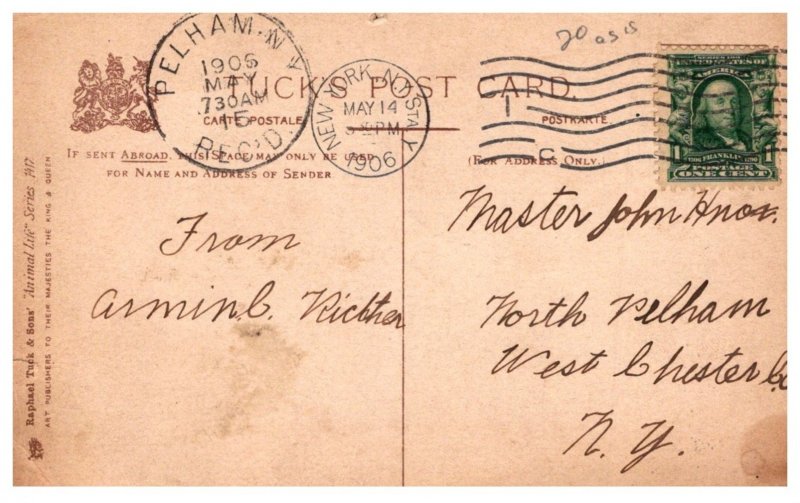 20 as is
PELHAM. N.Y.
1906
MAY
15
730AM
REC'D.
TUCK'S POST CARD.
CARTE POSTALE
POSTKARTE.
NEW YORK, N.Y. STA Y
MAY 14
PM
1906
1
C
SERIES 1902
UNITED STATES OF
AMERICA
1706 FRANKLIN 1790
1 POSTAGE 1
ONE CENT
IF SENT ABROAD, THIS SPACE MAY ONLY BE USED
FOR NAME AND ADDRESS OF SENDER
(FOR ADDRESS ONLY.)
From
Armin C. Richter
Master John Knox.
North Pelham
West Chester Co
N. Y.
Raphael Tuck & Sons' "Animal Life" Series 1417
ART PUBLISHERS TO THEIR MAJESTIES THE KING & QUEEN